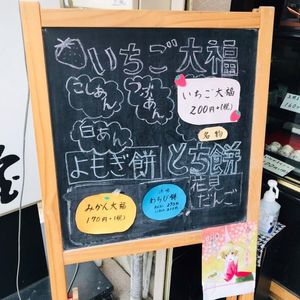 いちご大福
こしあん
つぶあん
白あん
いちご大福
200円+(税)
名物
よもぎ餅
とち餅
花見
だんご
みかん大福
170円+(税)
わらび餅